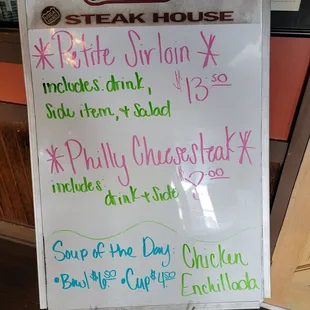 STEAK HOUSE
*Petite Sirloin*
includes: drink, $13.50
side item, + salad
*Philly Cheesesteak*
includes:
drink + side
Soup of the Day:
•Bowl $6.50 •Cup $4.50
Chicken
Enchillada